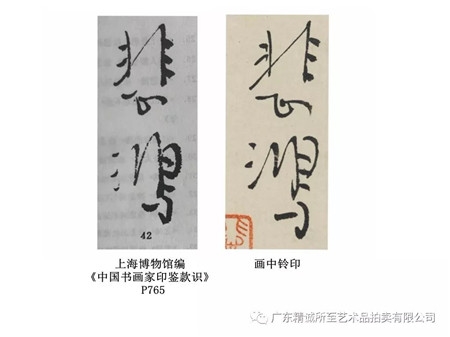 悲鴻
悲鴻
42
上海博物馆编
《中国书画家印鉴款识》
P765
画中钤印
广东精诚所至艺术品拍卖有限公司